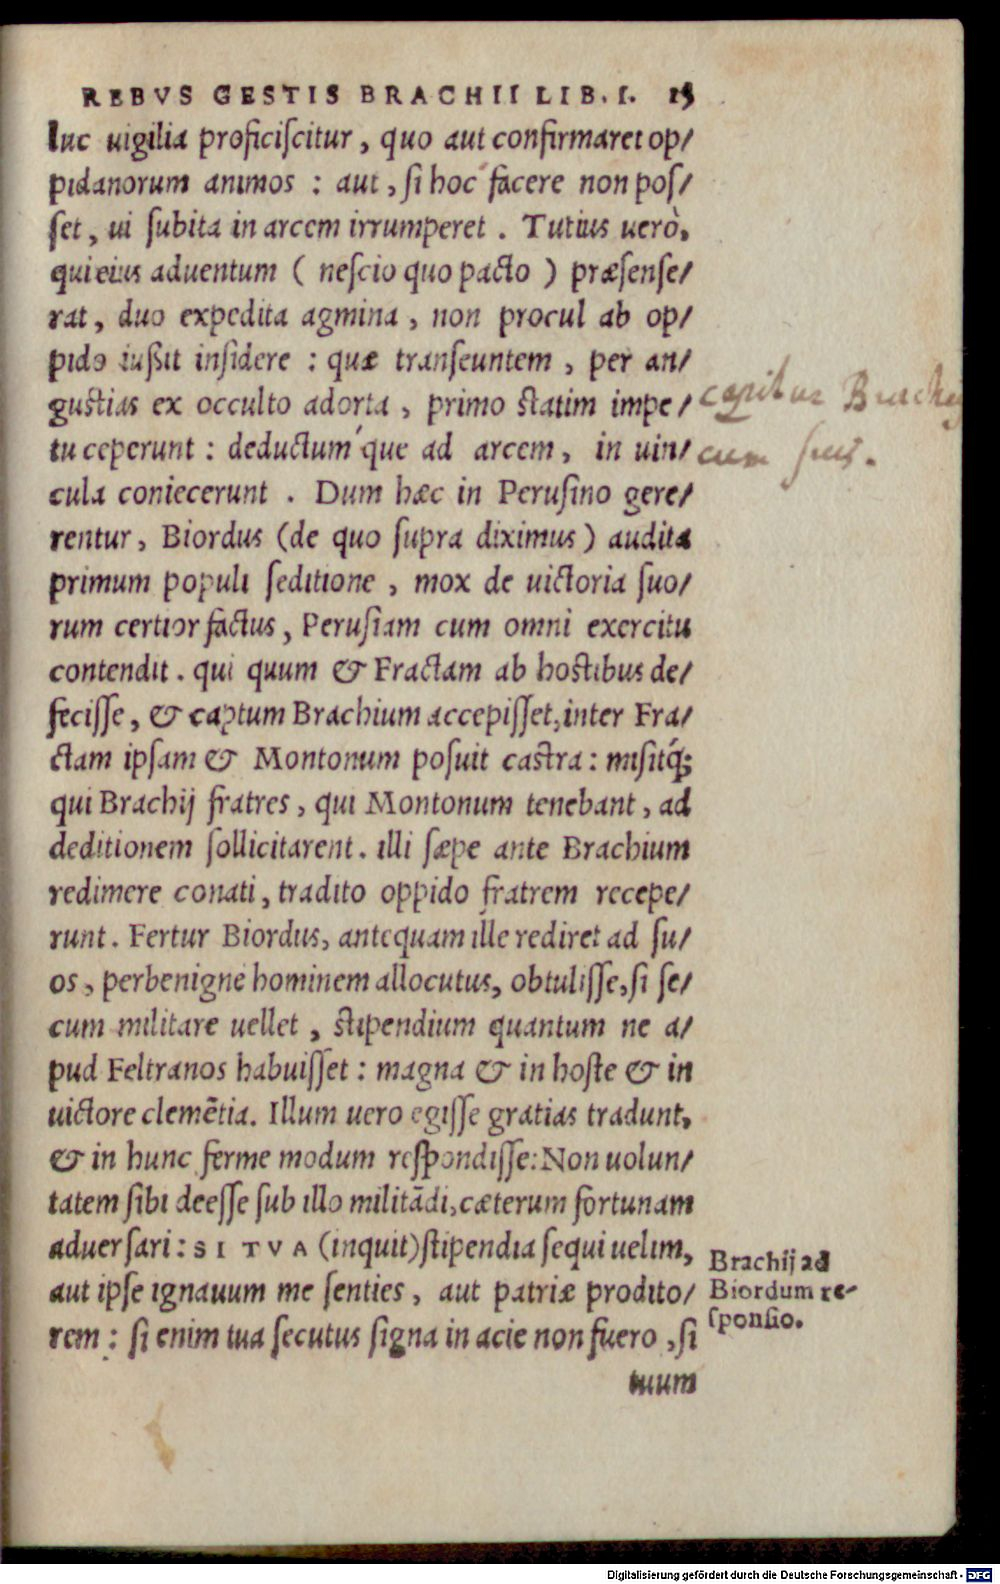 REBVS GESTIS BRACHII LIB. I. 15
luc uigilia proficiſcitur, quo aut confirmaret op/
pidanorum animos : aut, ſi hoc facere non poſ/
ſet, ui ſubita in arcem irrumperet . Tutius uerò,
qui eius aduentum ( neſcio quo pacto ) præſenſe/
rat, duo expedita agmina, non procul ab op/
pido iußit inſidere : quæ tranſeuntem, per an/
guſtias ex occulto adorta, primo ſtatim impe/
tu ceperunt : deductum´que ad arcem, in uin/
cula coniecerunt . Dum hæc in Peruſino gere/
rentur, Biordus (de quo ſupra diximus) audita
primum populi ſeditione, mox de uictoria ſuo/
rum certior factus, Peruſiam cum omni exercitu
contendit. qui quum & Fractam ab hoſtibus de/
feciſſe, & captum Brachium accepiſſet, inter Fra/
ctam ipſam & Montonum poſuit caſtra: miſitq́;
qui Brachij fratres, qui Montonum tenebant, ad
deditionem ſollicitarent. illi ſæpe ante Brachium
redimere conati, tradito oppido fratrem recepe/
runt. Fertur Biordus, antequam ille rediret ad ſu/
os, perbenigne hominem allocutus, obtuliſſe, ſi ſe/
cum militare uellet, ſtipendium quantum ne a/
pud Feltranos habuiſſet : magna & in hoſte & in
uictore clemẽtia. Illum uero egiſſe gratias tradunt,
& in hunc ferme modum reſpondiſſe: Non uolun/
tatem ſibi deeſſe ſub illo militãdi, cæterum fortunam
aduerſari: SI TVA (inquit) ſtipendia ſequi uelim,
aut ipſe ignauum me ſenties, aut patriæ prodito/
rem : ſi enim tua ſecutus ſigna in acie non fuero, ſi
tuum
capitur Brachius
cum ſuis.
Brachij ad
Biordum re-
ſponſio.
Digitalisierung gefördert durch die Deutsche Forschungsgemeinschaft - DFG